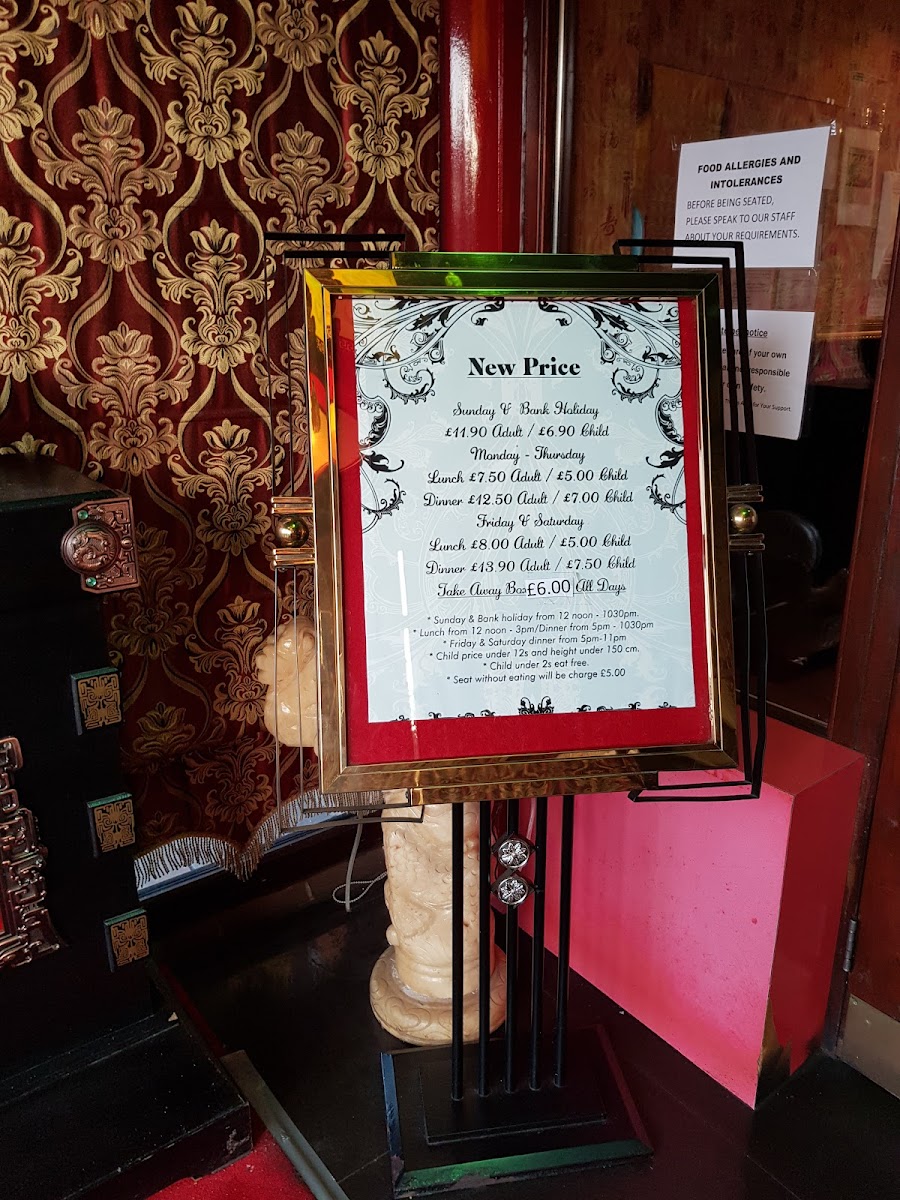 New Price
Sunday & Bank Holiday
£11.90 Adult / £6.90 Child
Monday - Thursday
Lunch £7.50 Adult / £5.00 Child
Dinner £12.50 Adult / £7.00 Child
Friday & Saturday
Lunch £8.00 Adult / £5.00 Child
Dinner £13.90 Adult / £7.50 Child
Take Away £6.00 All Days
* Sunday & Bank holiday from 12 noon - 1030pm.
* Lunch from 12 noon - 3pm/Dinner from 5pm - 1030pm
* Friday & Saturday dinner from 5pm-11pm
* Child price under 12s and height under 150 cm.
* Child under 2s eat free.
* Seat without eating will be charge £5.00
FOOD ALLERGIES AND
INTOLERANCES
BEFORE BEING SEATED,
PLEASE SPEAK TO OUR STAFF
ABOUT YOUR REQUIREMENTS.
notice
of your own
responsible
for Your Support.